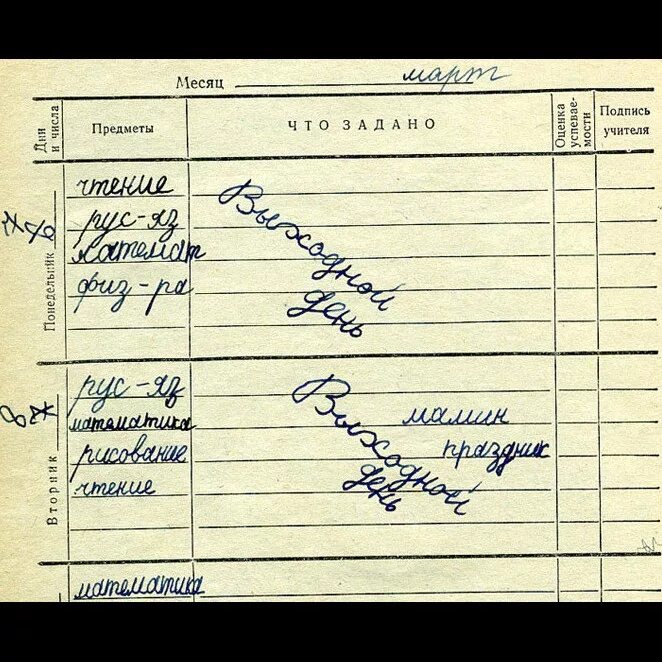 Месяц март
Дни и числа
Предметы
ЧТО ЗАДАНО
Оценка успевае-мости
Подпись учителя
Понедельник
7
чтение
рус-яз
математ
физ-ра
Выходной
день
Вторник
8
рус-яз
математика
рисование
чтение
Выходной
день
мамин
праздник
математика